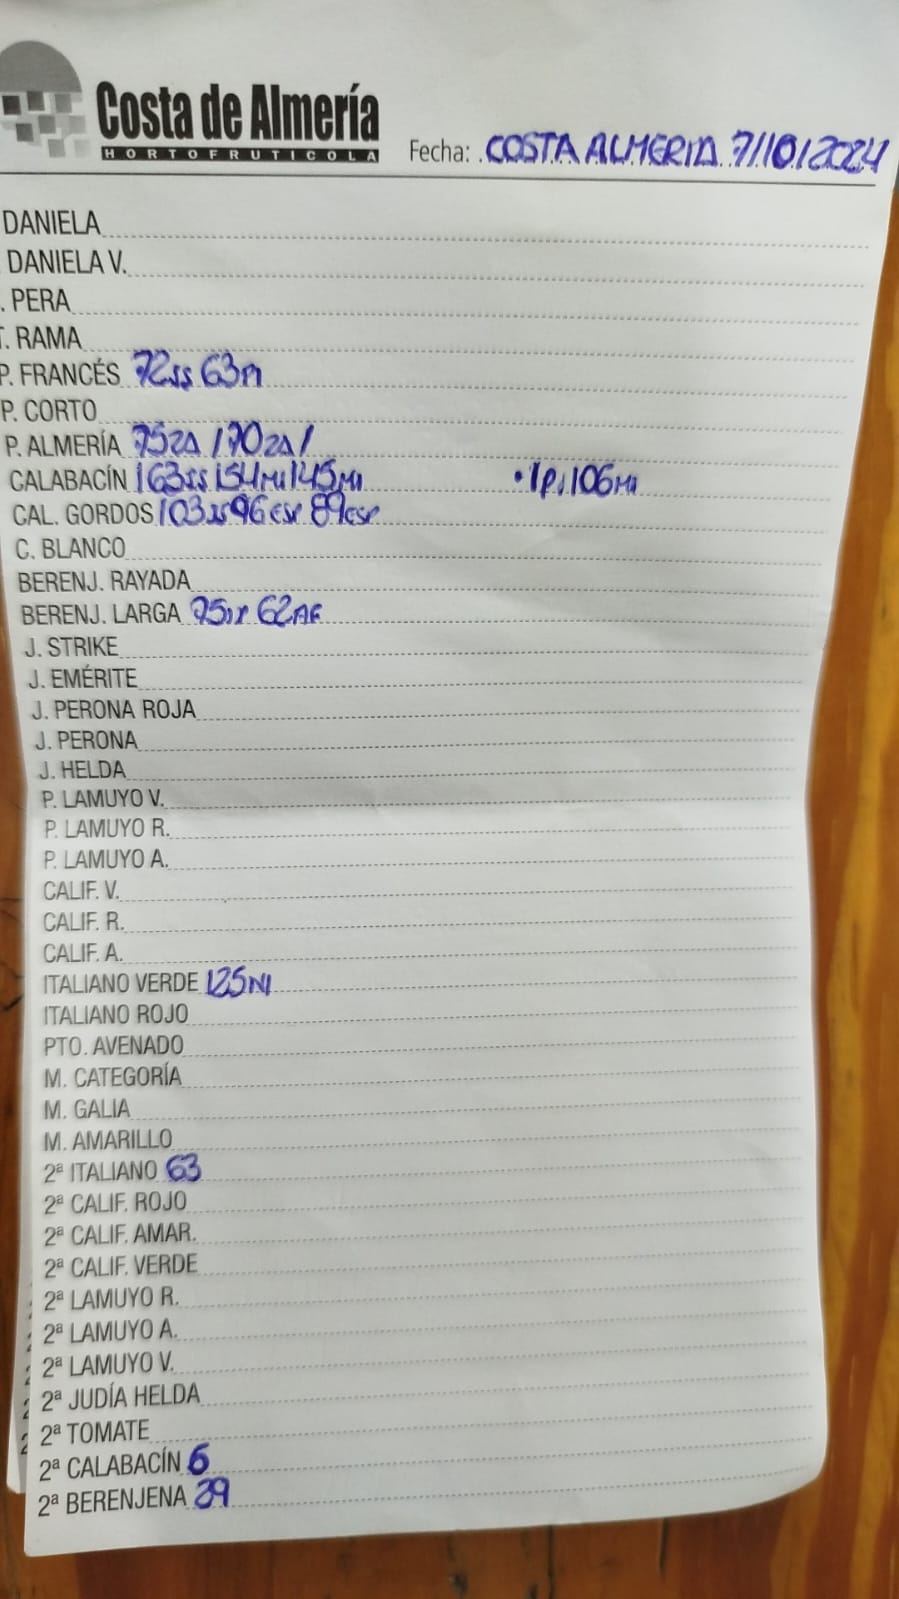 Costa de Almería
HORTOFRUTICOLA
Fecha: COSTA ALMERIA 7/10/2024
DANIELA
DANIELA V.
. PERA
T. RAMA
P. FRANCÉS 72SS 63PI
P. CORTO
P. ALMERÍA 75ZA / 70ZA /
CALABACÍN 163SS 154MI 145MI • 1P. 106MI
CAL. GORDOS 103SS 96CSP 89CSP
C. BLANCO
BERENJ. RAYADA
BERENJ. LARGA 75 62AF
J. STRIKE
J. EMÉRITE
J. PERONA ROJA
J. PERONA
J. HELDA
P. LAMUYO V.
P. LAMUYO R.
P. LAMUYO A.
CALIF. V.
CALIF. R.
CALIF. A.
ITALIANO VERDE 125NI
ITALIANO ROJO
PTO. AVENADO
M. CATEGORÍA
M. GALIA
M. AMARILLO
2ª ITALIANO 63
2ª CALIF. ROJO
2ª CALIF. AMAR.
2ª CALIF. VERDE
2ª LAMUYO R.
2ª LAMUYO A.
2ª LAMUYO V.
2ª JUDÍA HELDA
2ª TOMATE
2ª CALABACÍN 6
2ª BERENJENA 39